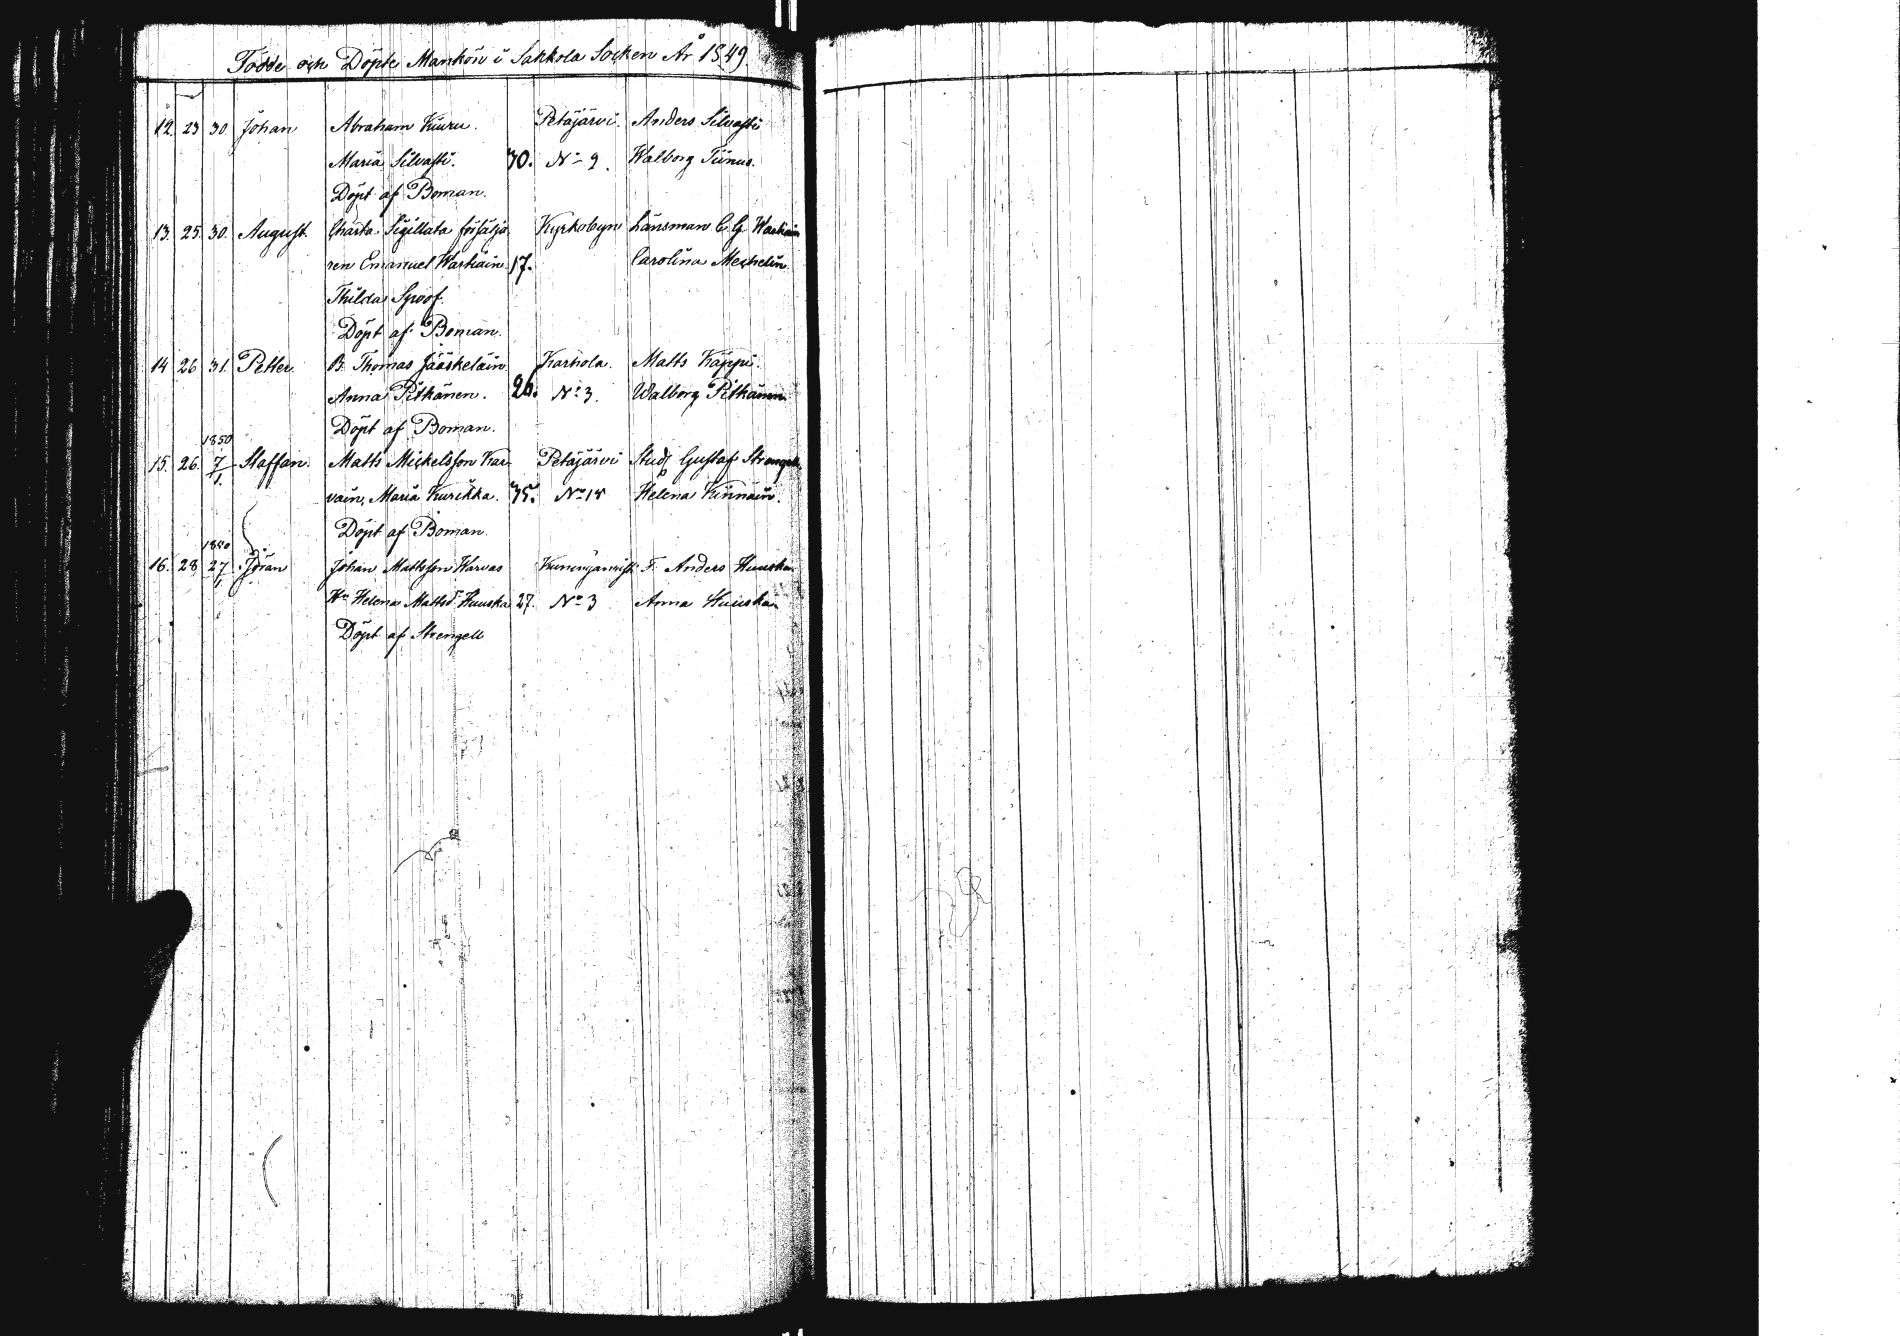 Födde och Döpte Mankön i Sakkola Socken År 1849
12. 23 30. Johan Abraham Kiuru. Petäjärvi. Anders Silvasti
Maria Silvasti. 30. No 9. Walborg Tiinus.
Döpt af Boman.
13. 25. 30. August. Charta Sigillata försälja Kyrkobyn Länsman C. G. Wartiain
ren Emanuel Wartiain 17. Carolina Mechelin
Thilda Spoof.
Döpt af Boman.
14 26 31. Petter. B. Thomas Jääskeläin Karhola. Matts Käppi.
Anna Pitkänen. 26. No 3. Walborg Pitkänen
Döpt af Boman.
1850
15. 26. 7/1. Staffan. Matts Mickelsson Kar Petäjärvi Stud. Gustaf Strengell
vain, Maria Kurikka. 35. No 18 Helena Kinnain.
Döpt af Boman
1850
16. 28 27/1. Göran Johan Mattsson Warvas F. Anders Huuska
Hu Helena Mattsdr Huuska 27. No 3 Anna Huuska
Döpt af Strengell